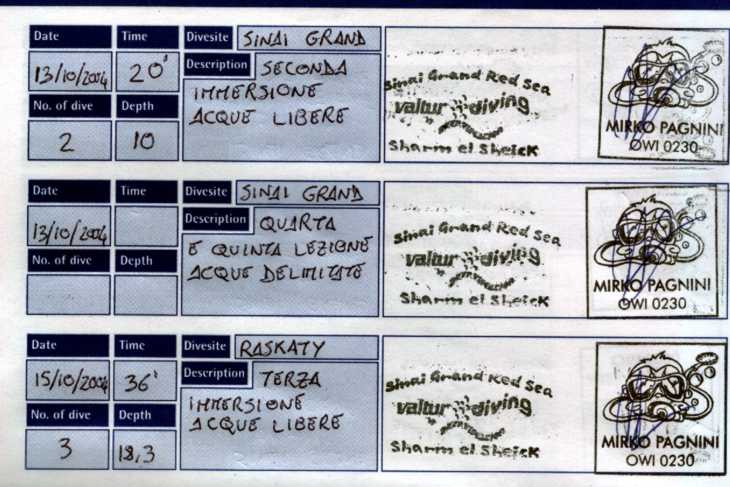 Date Time Divesite SINAI GRAND
13/10/2004 20' Description SECONDA
IMMERSIONE
No. of dive Depth ACQUE LIBERE
2 10
Sinai Grand Red Sea
valtur diving
Sharm el Sheick
MIRKO PAGNINI
OWI 0230
Date Time Divesite SINAI GRAND
13/10/2004 Description QUARTA
E QUINTA LEZIONE
No. of dive Depth ACQUE DELIMITATE
Sinai Grand Red Sea
valtur diving
Sharm el Sheick
MIRKO PAGNINI
OWI 0230
Date Time Divesite RASKATY
15/10/2004 36' Description TERZA
IMMERSIONE
No. of dive Depth ACQUE LIBERE
3 18,3
Sinai Grand Red Sea
valtur diving
Sharm el Sheick
MIRKO PAGNINI
OWI 0230